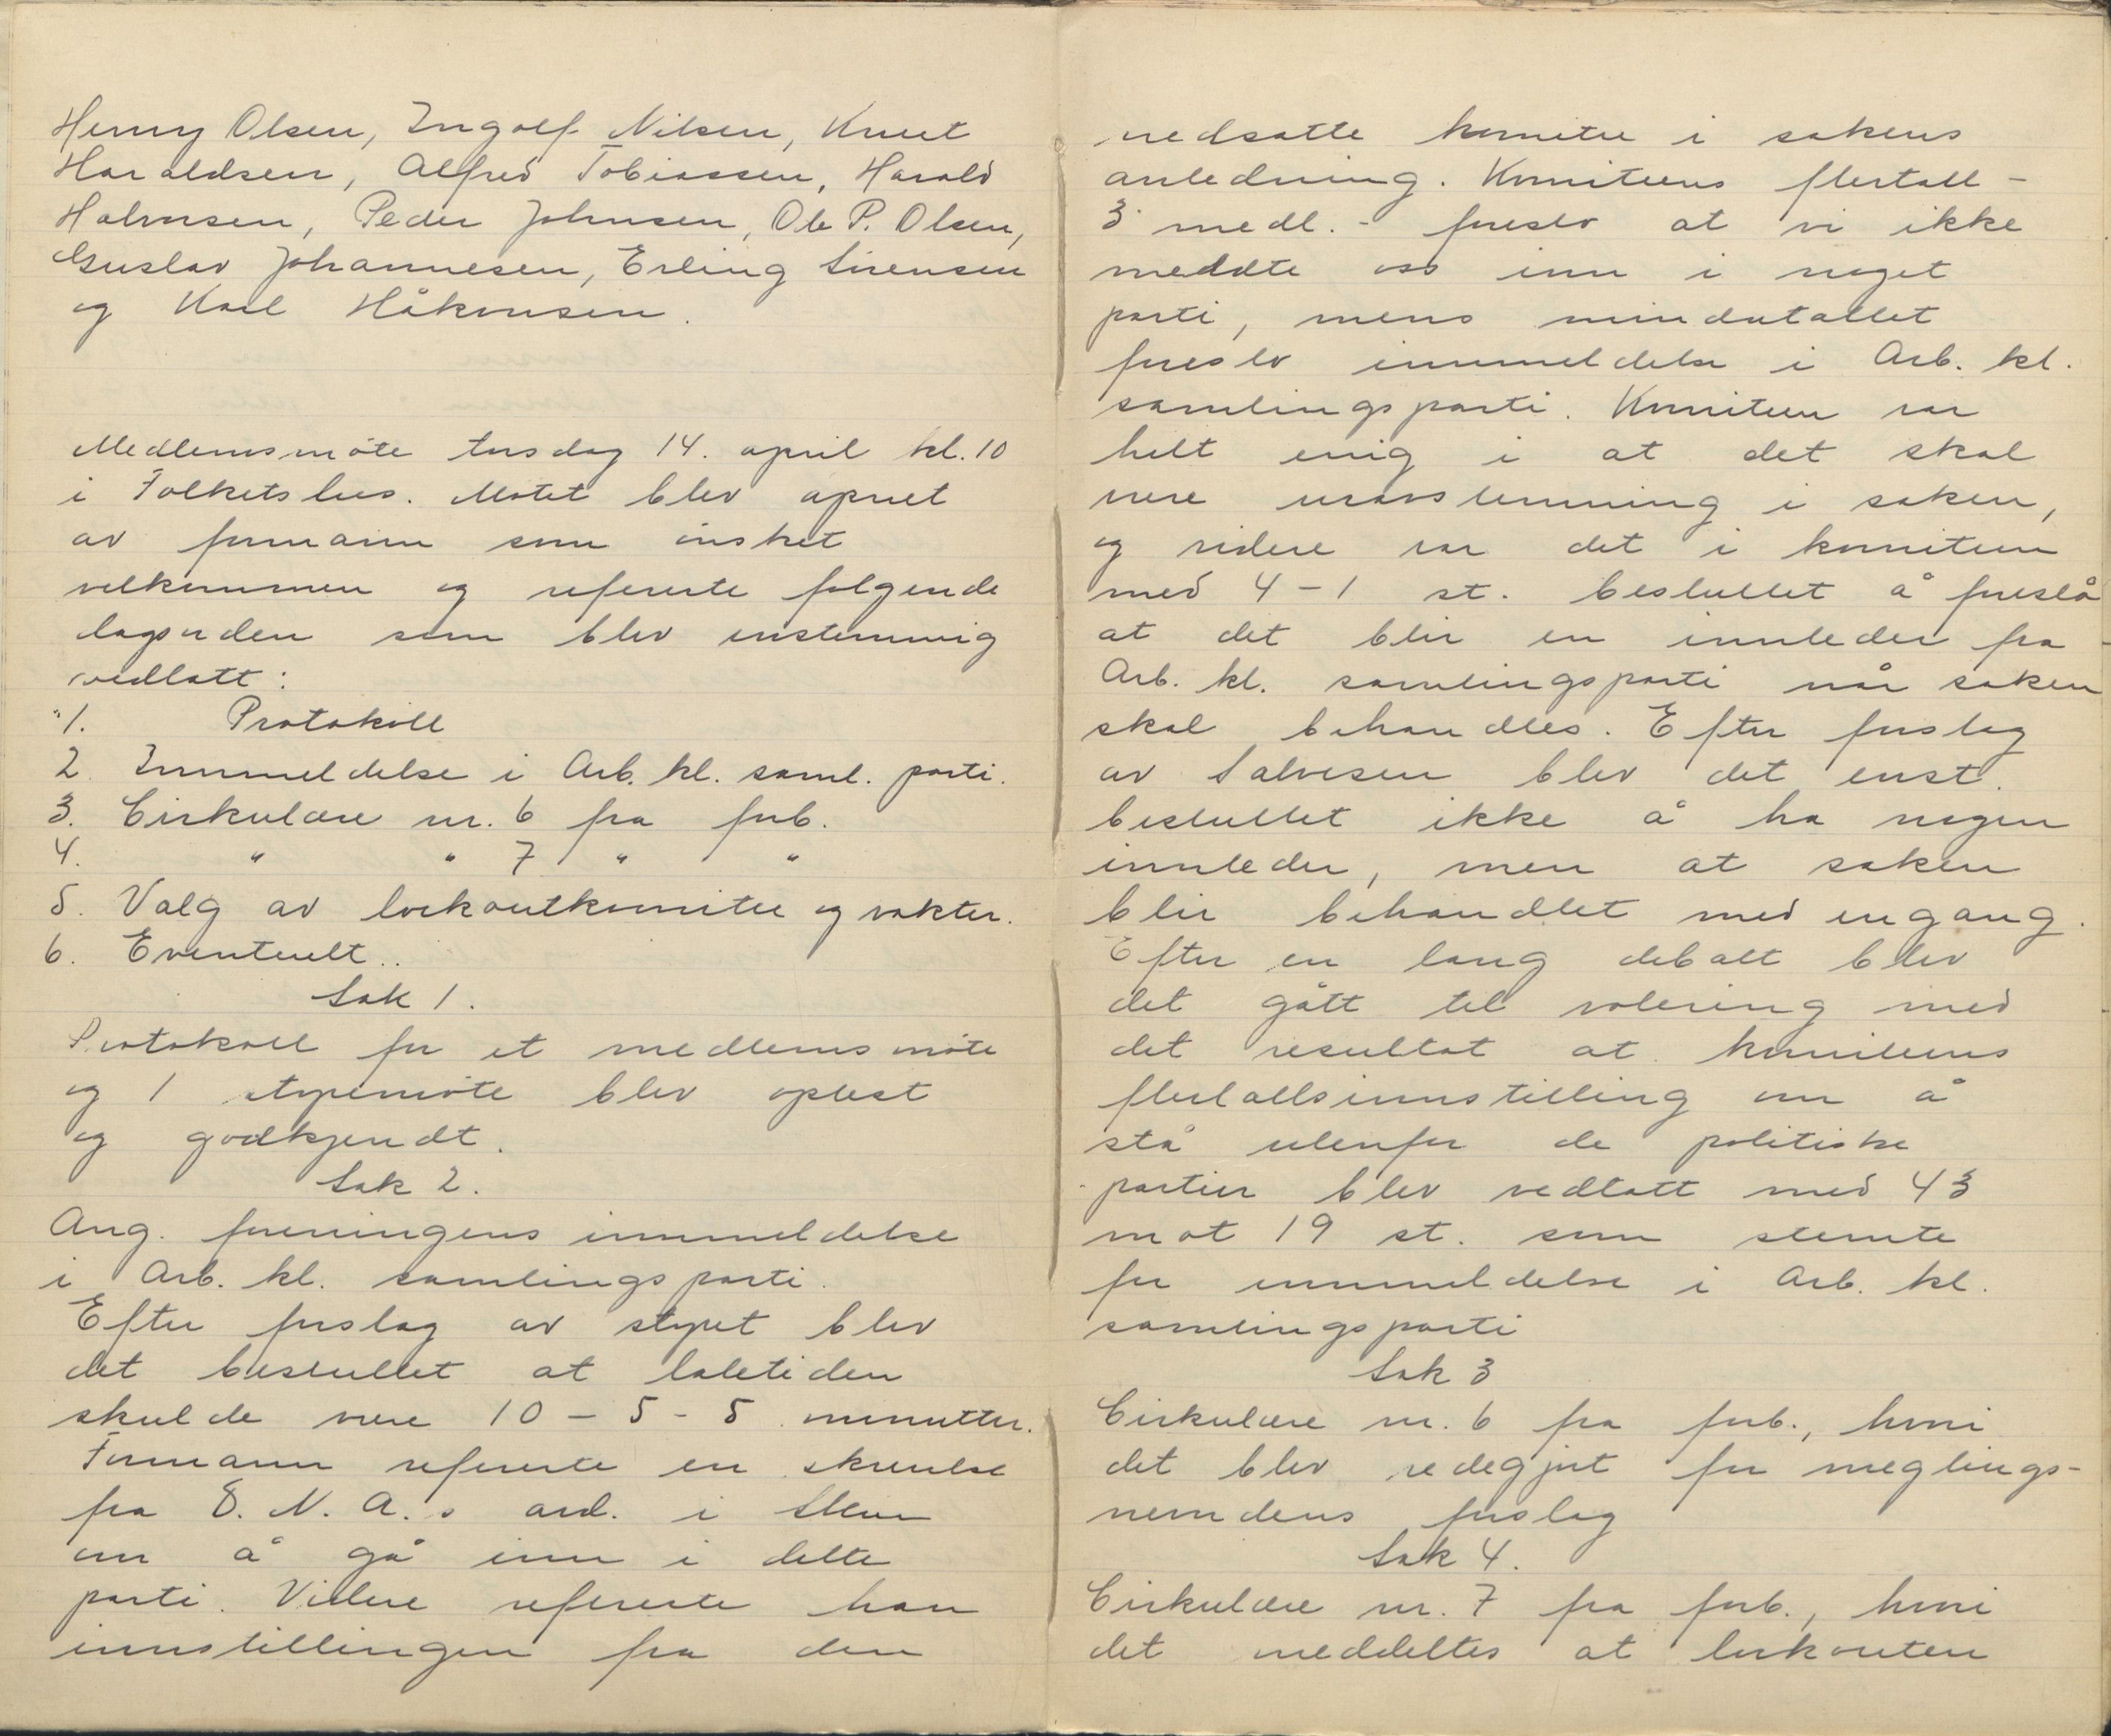 Henry Olsen, Ingolf Nilsen, Knut
Haraldsen, Alfred Tobiassen, Harald
Halvorsen, Peder Johnsen, Ole P. Olsen,
Gustav Johannesen, Erling Sørensen
og Karl Håkonsen.
Medlemsmöte tirsdag 14. april kl. 10
i Folkets hus. Mötet blev åpnet
av formann som önsket
velkommen og refererte følgende
dagsorden som blev enstemmig
vedtatt:
"1. Protokoll
2. Innmeldelse i Arb. kl. saml. parti.
3. Cirkulære nr. 6 fra forb.
4. " " 7 " "
5. Valg av lockoutkomite og vakter.
6. Eventuelt..
Sak 1.
Protokoll for et medlemsmöte
og 1 styremöte blev oplest
og godkjendt.
Sak 2.
Ang. foreningens innmeldelse
i Arb. kl. samlingsparti.
Efter forslag av styret blev
det besluttet at taletiden
skulde være 10 - 5 - 5 minutter.
Formann refererte en skrivelse
fra D. N. A.s avd. i Skien
om å gå inn i dette
parti. Videre refererte han
innstillingen fra den
nedsatte komite i sakens
anledning. Komiteens flertall -
3 medl. - foreslo at vi ikke
meldte oss inn i noget
parti, mens mindretallet
foreslo innmeldelse i Arb. kl.
samlingsparti. Komiteen var
helt enig i at det skal
være uravstemning i saken,
og videre var det i komiteen
med 4 - 1 st. besluttet å foreslå
at det blir en innleder fra
Arb. kl. samlingsparti når saken
skal behandles. Efter forslag
av Salvesen blev det enst.
besluttet ikke å ha nogen
innleder, men at saken
blir behandlet med engang.
Efter en lang debatt blev
det gått til votering med
det resultat at komiteens
flertallsinnstilling om å
stå utenfor de politiske
partier blev vedtatt med 43
mot 19 st. som stemte
for innmeldelse i Arb. kl.
samlingsparti
Sak 3
Cirkulære nr. 6 fra forb., hvori
det blev redegjort for meglings-
nemdens forslag
Sak 4.
Cirkulære nr. 7 fra forb., hvori
det meddeltes at lockouten